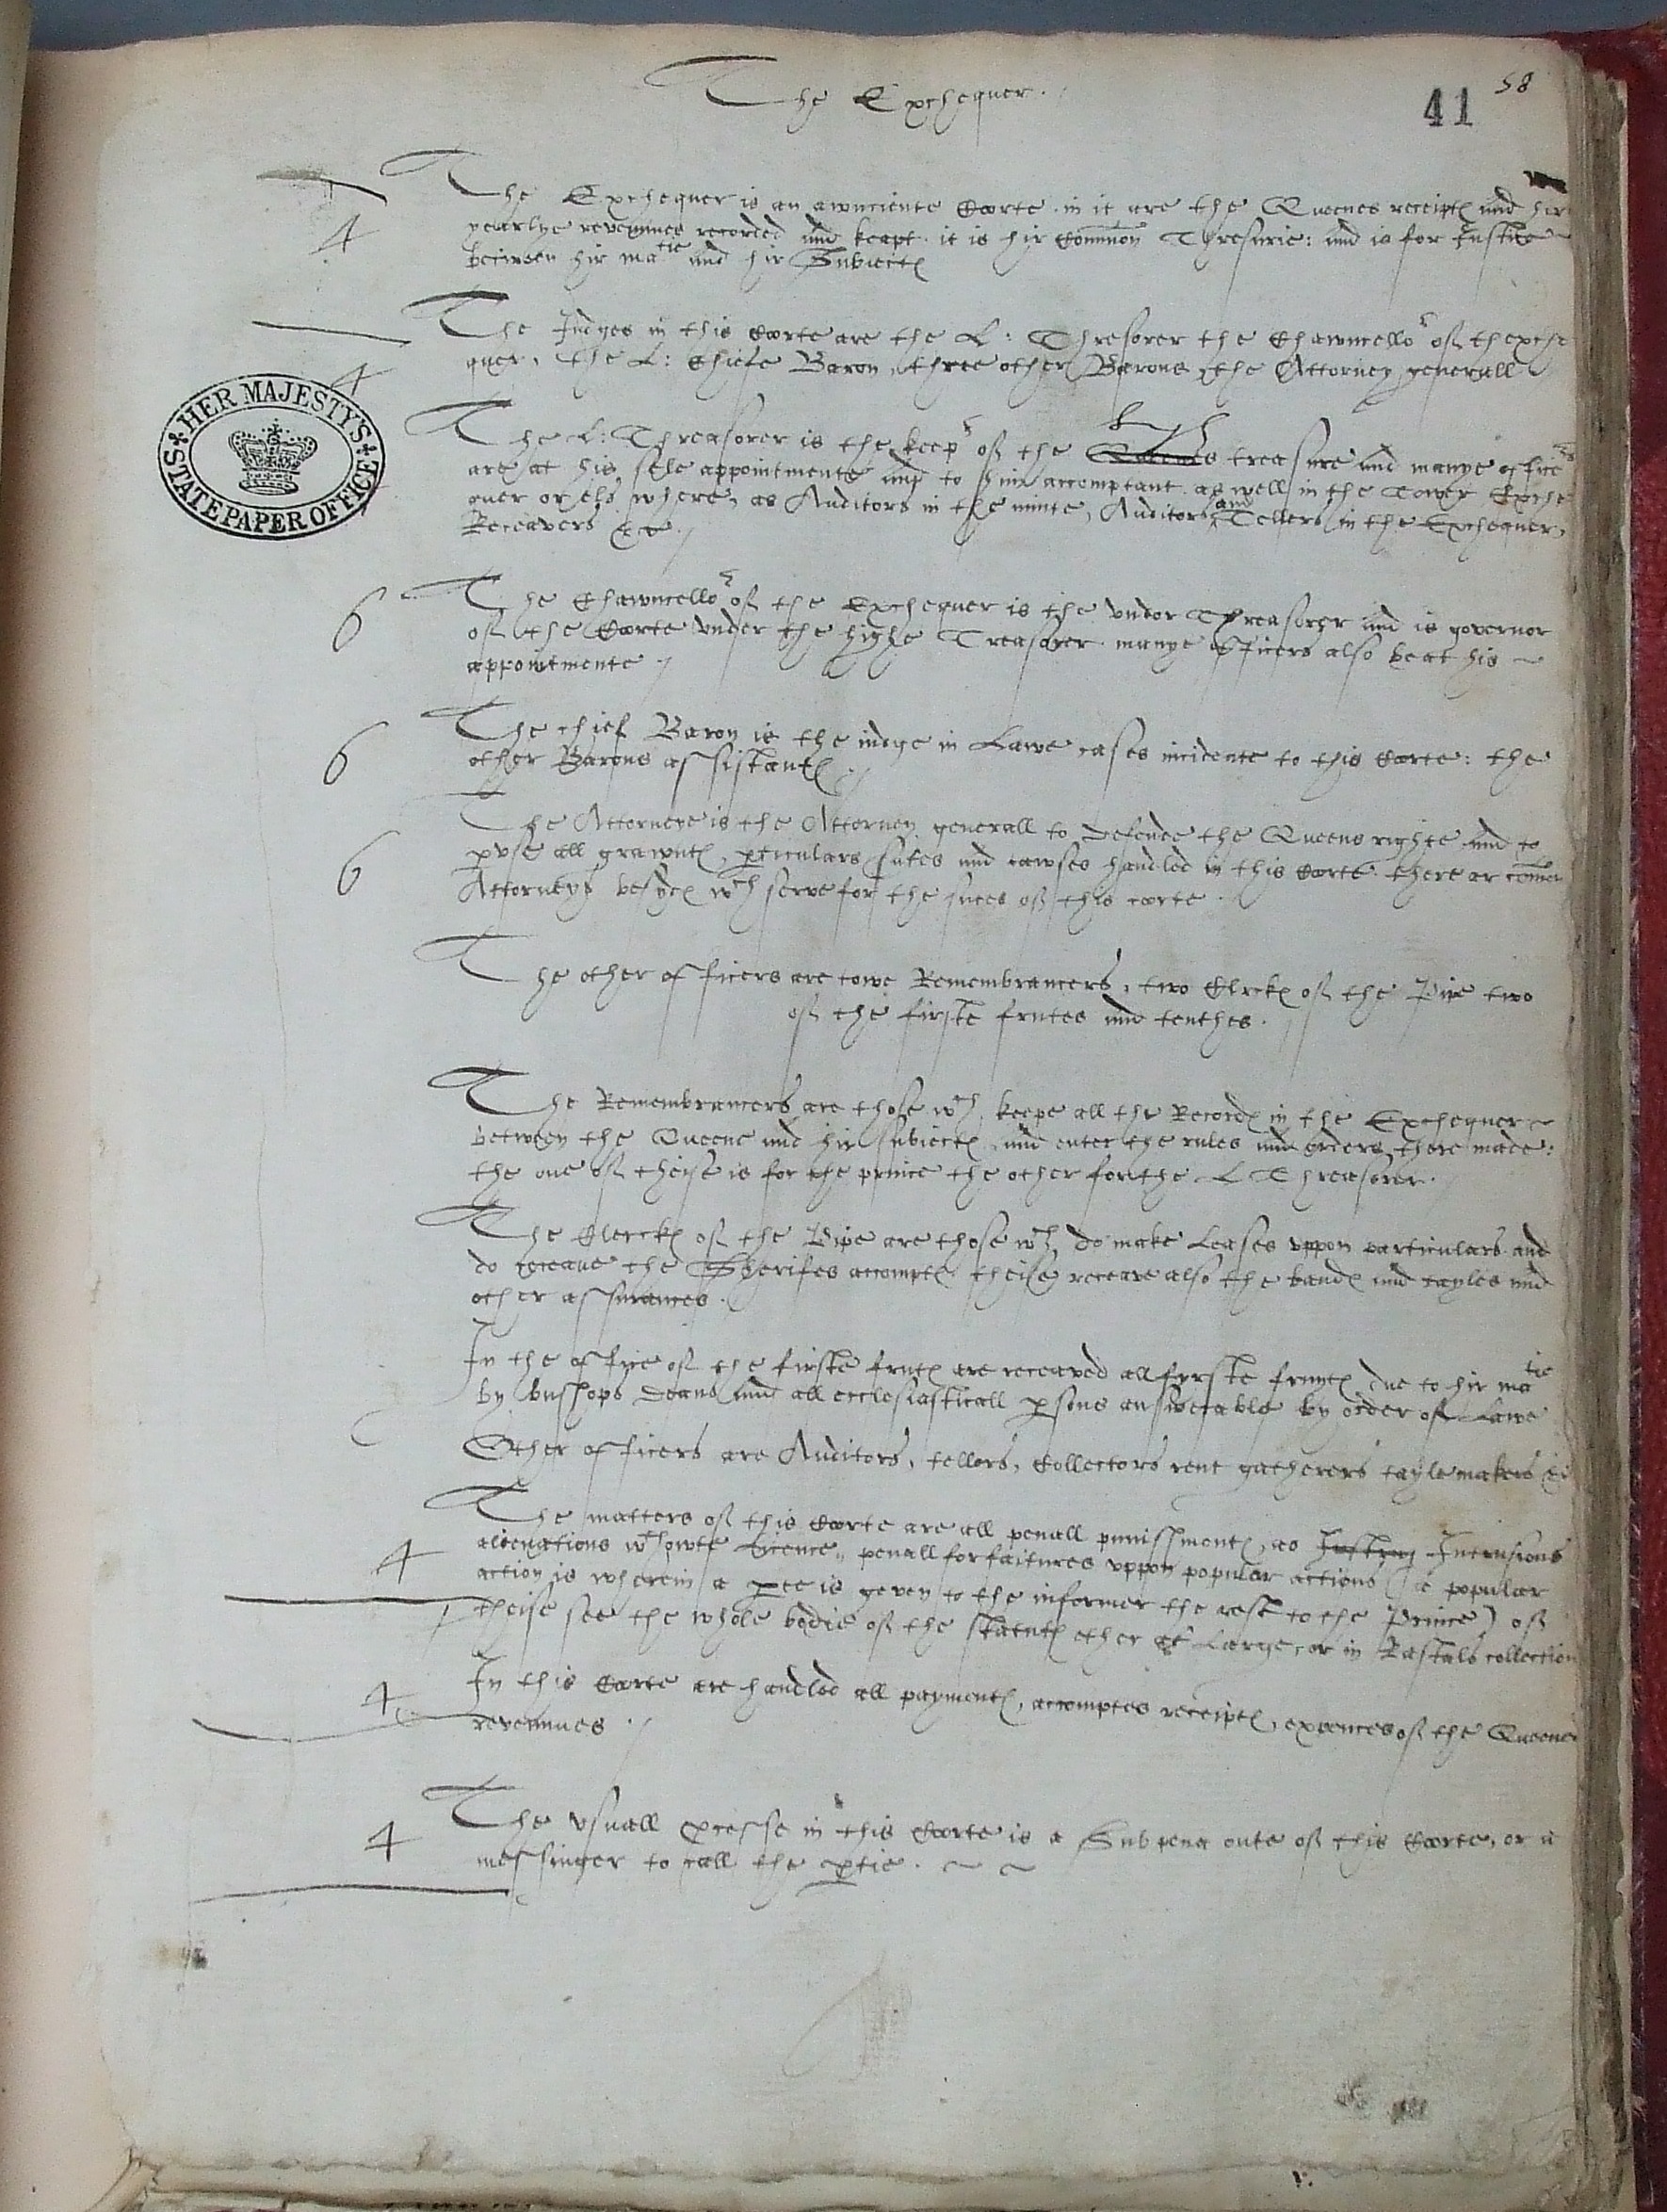 58
41
The Exchequer.
The Exchequer is an awnciente Corte. in it are the Queenes receiptes and hir
4
yearlye revennues recorded and keapt. it is hir Common Thresurie: and is for Justice
betwen hir matie and hir Subiectes
The Judges in this Corte are the L: Thresorer the Chawncellor of thexche
4
quer, the L: Chiefe Baron, three other Barons, the Attorney generall
HER MAJESTY'S
STATE PAPER OFFICE
The L: Threasorer is the keepr of the Queenes treasure and manye offices
are at his sele appointmente and to him accomptant as well in the Tower Exche
quer or els where, as Auditors in the minte, Auditors and Tellers in the Exchequer,
Receavers &c.
The Chawncellor of the Exchequer is the vnder Threasorer and is governor
6
of the Corte vnder the highe Treasorer manye officers also be at his
appointmente
The chief Baron is the iudge in Lawe cases incidente to this Corte: the
6
other Barons assistantes
The Attorneye is the Attorney generall to defende the Queens righte and to
pvse all grawntes, pticulars sutes and cawses handled in this Corte there ar comen
6
Attorneys besydes wch serve for the sutes of this corte.
The other officers are towe Remembrancers, two Clrckes of the Pipe two
of the firste frutes and tenthes.
The Remembrancers are those wch keepe all the Recordes in the Exchequer
between the Queene and hir subiectes and enter the rules and orders there made:
the one of theise is for the prince the other for the L Threasorer.
The Clerckes of the Pipe are those wch do make Leases vppon particulars and
do receaue the Sherifes accomptes theise receave also the bandes and tayles and
other assurances.
In the office of the firste frutes are receaved all fyrste fruytes due to hir matie
by bushops deans and all ecclesiasticall psons answerable by order of Lawe
Other officers are Auditors, tellors, Collectors rent gatherers tayle makers &c
The matters of this Corte are all penall punishmentes, as Intrusions
4
alienations wthowte licence, penall forfaitures vppon popular actions (a popular
action is wherein a pte is geven to the informer the rest to the Prince) of
theise see the whole bodie of the statutes ether at Large, or in Rastals collection
In this Corte are handled all paymentes, accomptes receiptes, expences of the Queenes
4
revennues.
The vsuall processe in this Corte is a Subpena oute of this Corte, or a
4
messinger to call the ptie.